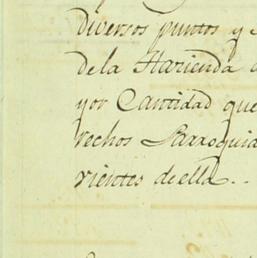 diversos puntos y
de la Hazienda
yor Cantidad que
rechos Parroquia
vientes de ella.